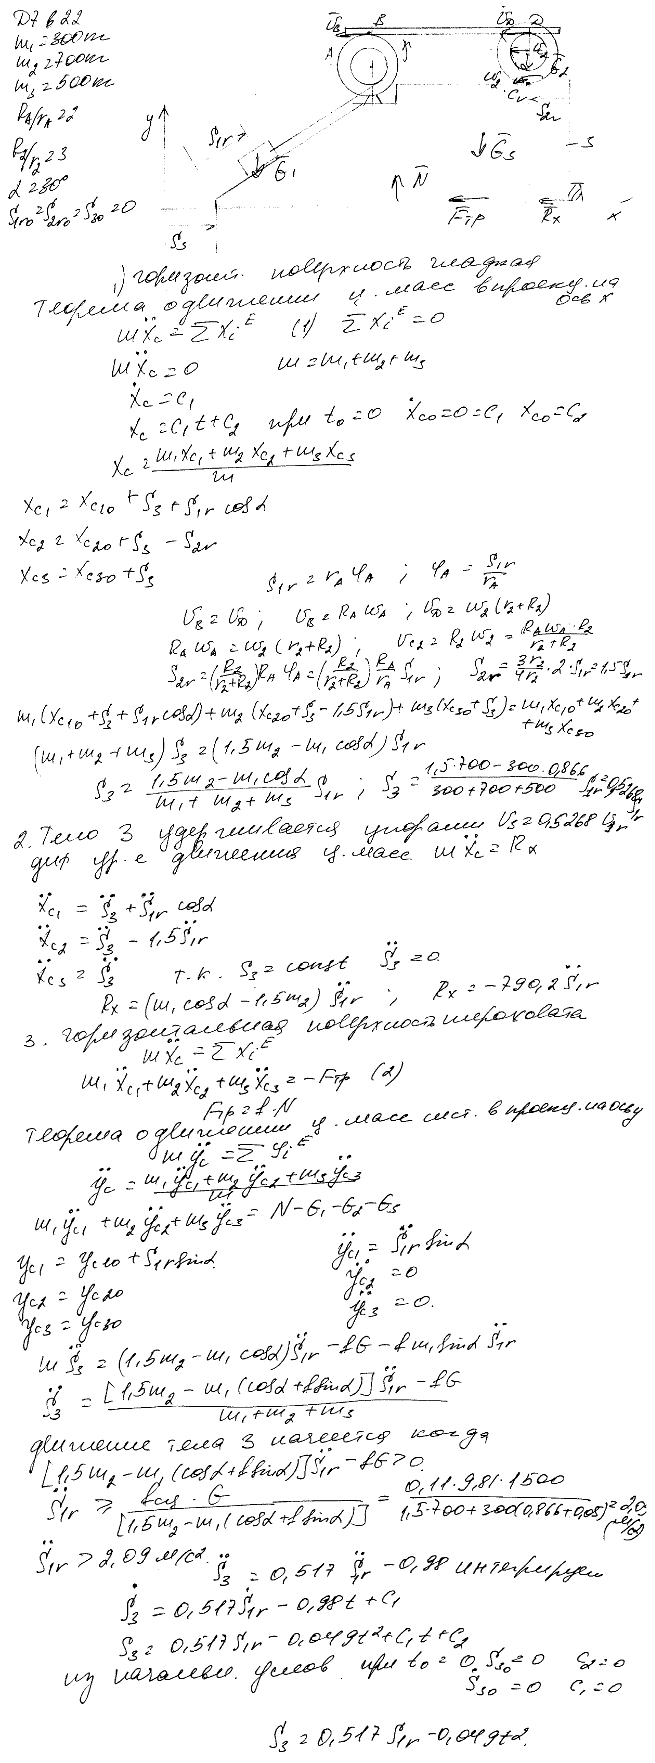 Д7 в 22
m₁ = 300 кг
m₂ = 700 кг
m₃ = 500 кг
R_A/r_A = 2
R₂/r₂ = 3
α = 30°
S₁r₀ = S₂r₀ = S₃₀ = 0
V̄_B B V̄_D D
A
y S₁r Ḡ₁ Ḡ₂ ω₂ S₂r
Ḡ₃ 3
N̄
F̄тр R̄x x
S₃
1) горизонт. поверхность гладкая
Теорема о движении ц. масс в проекц. на ось x
mẍc = ΣXiᴱ (1) ΣXiᴱ = 0
mẍc = 0 m = m₁ + m₂ + m₃
ẋc = C₁
xc = C₁t + C₂ при t₀ = 0 ẋc₀ = 0 = C₁ xc₀ = C₂
xc = (m₁xc₁ + m₂xc₂ + m₃xc₃)/m
xc₁ = xc₁₀ + S₃ + S₁r cosα
xc₂ = xc₂₀ + S₃ − S₂r
xc₃ = xc₃₀ + S₃ S₁r = r_A φ_A ; φ_A = S₁r/r_A
V_B = V_D ; V_B = R_A ω_A ; V_D = ω₂(r₂+R₂)
R_A ω_A = ω₂(r₂+R₂) ; Vc₂ = R₂ω₂ = R_A ω_A · R₂/(r₂+R₂)
S₂r = (R₂/(r₂+R₂)) R_A φ_A = (R₂/(r₂+R₂)) R_A/r_A S₁r ; S₂r = 3r₂/4r₂ · 2 · S₁r = 1,5S₁r
m₁(xc₁₀ + S₃ + S₁r cosα) + m₂(xc₂₀ + S₃ − 1,5S₁r) + m₃(xc₃₀ + S₃) = m₁xc₁₀ + m₂xc₂₀ + + m₃xc₃₀
(m₁ + m₂ + m₃) S₃ = (1,5m₂ − m₁ cosα) S₁r
S₃ = (1,5m₂ − m₁cosα)/(m₁ + m₂ + m₃) S₁r ; S₃ = (1,5·700 − 300·0,866)/(300+700+500) S₁r = 0,5268 S₁r
2. Тело 3 удерживается упорами V₃ = 0,5268 V₁r
диф ур. е движения ц. масс mẍc = Rx
ẍc₁ = S̈₃ + S̈₁r cosα
ẍc₂ = S̈₃ − 1,5S̈₁r
ẍc₃ = S̈₃ т.к. S₃ = const S̈₃ = 0
Rx = (m₁cosα − 1,5m₂) S̈₁r ; Rx = −790,2 S̈₁r
3. горизонтальная поверхность шероховата
mẍc = ΣXiᴱ
m₁ẍc₁ + m₂ẍc₂ + m₃ẍc₃ = −Fтр (2)
Fтр = f·N
Теорема о движении ц. масс сист. в проекц. на ось y
mÿc = ΣYiᴱ
ÿc = (m₁ÿc₁ + m₂ÿc₂ + m₃ÿc₃)/m
m₁ÿc₁ + m₂ÿc₂ + m₃ÿc₃ = N − G₁ − G₂ − G₃
yc₁ = yc₁₀ + S₁r sinα ÿc₁ = S̈₁r sinα
yc₂ = yc₂₀ ÿc₂ = 0
yc₃ = yc₃₀ ÿc₃ = 0.
mS̈₃ = (1,5m₂ − m₁ cosα)S̈₁r − fG − fm₁sinα S̈₁r
S̈₃ = ([1,5m₂ − m₁(cosα + fsinα)]S̈₁r − fG)/(m₁ + m₂ + m₃)
движение тела 3 начнется когда
[1,5m₂ − m₁(cosα + fsinα)]S̈₁r − fG > 0
S̈₁r ≥ fсц · G/[1,5m₂ − m₁(cosα + fsinα)] = 0,11·9,81·1500/(1,5·700 + 300(0,866+0,05)) = 2,09 (м/с²)
S̈₁r > 2,09 м/с². S̈₃ = 0,517 S̈₁r − 0,98 интегрируем
Ṡ₃ = 0,517Ṡ₁r − 0,98t + C₁
S₃ = 0,517S₁r − 0,049t² + C₁t + C₂
из начальн. услов при t₀ = 0. S₃₀ = 0 C₂ = 0
Ṡ₃₀ = 0 C₁ = 0
S₃ = 0,517 S₁r − 0,049t².